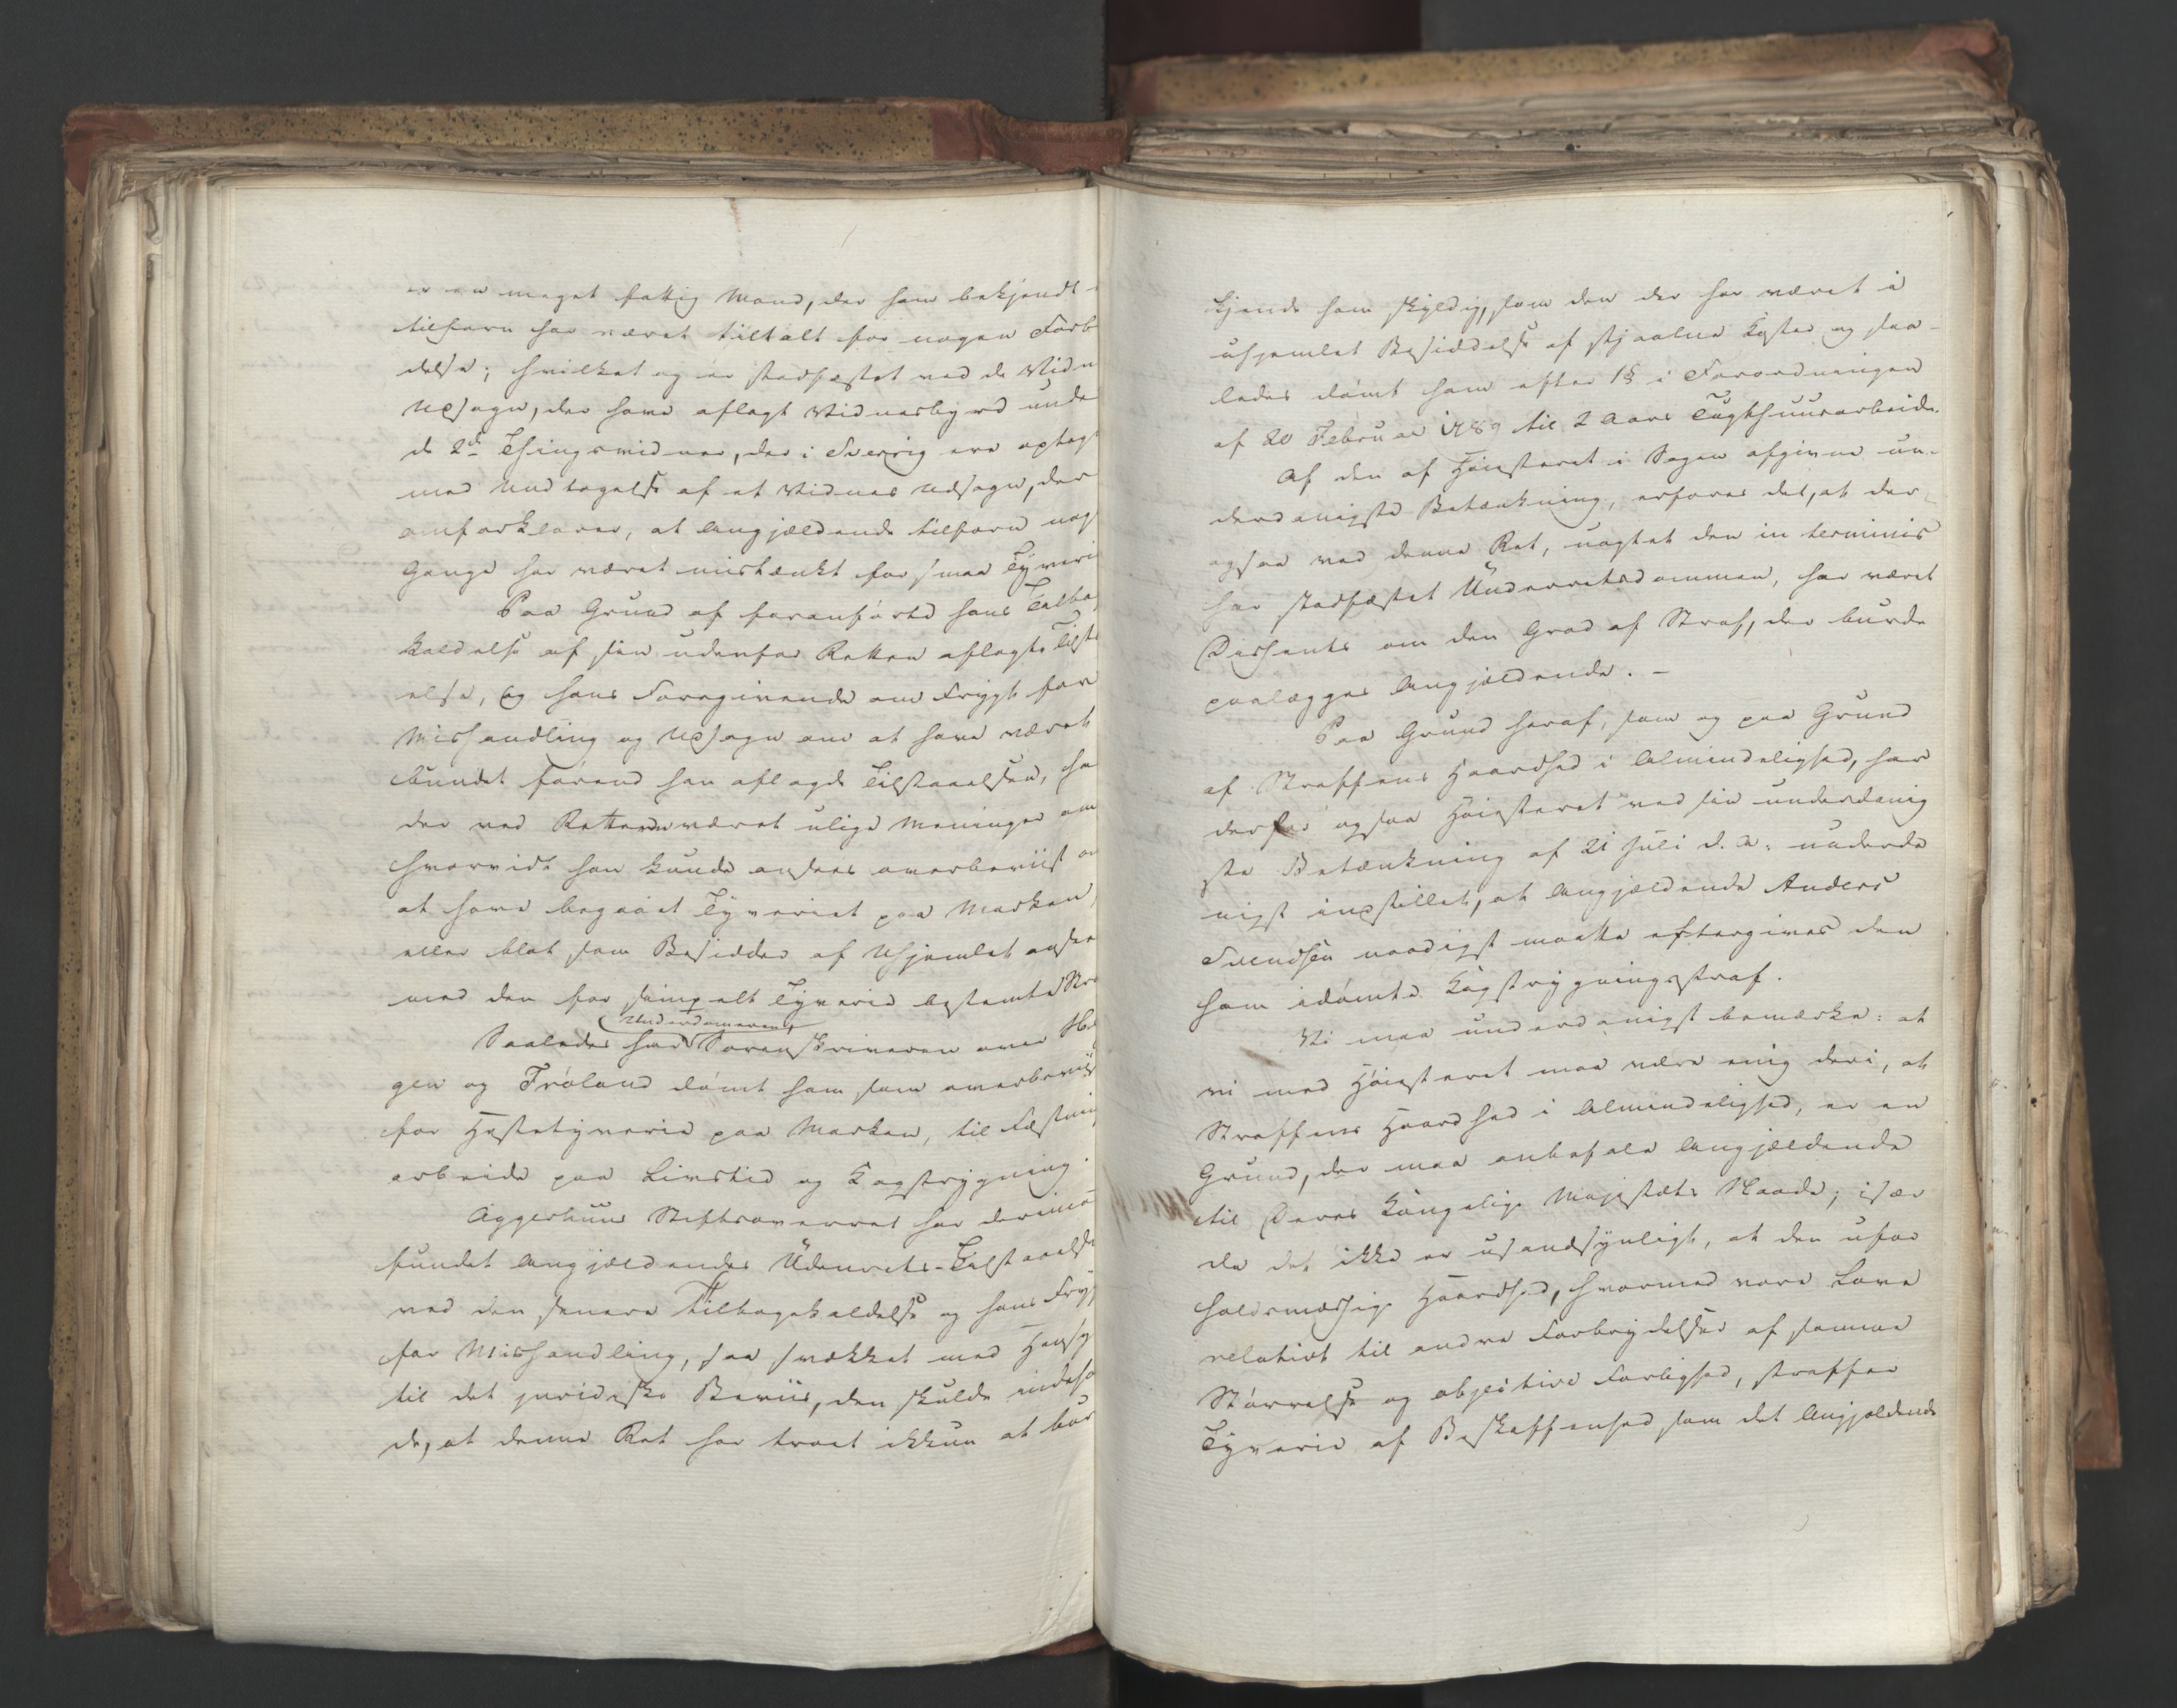 er en meget fattig Mand, der han bekjendt
tilforn har været tiltalt for nogen Forb
delse; hvilket og er stadfæstet ved de Vidn
Udsagn, der have aflagt Vidnesbyrd unde
de 2de Thingsvidner, der i Sverrig ere optag
med Undtagelse af et Vidnes Udsagn, der
omforklarer, at Angjældende tilforn nog
Gange har været mistænkt for smaa Tyveri
Paa Grund af foranførte hans Tilba
kaldelse af sin udenfor Retten aflagte Tilst
else, og hans Foregivende om Frygt for
Mishandling og Udsagn om at have været
bundet førend han aflagde Tilstaaelsen, ha
der ved Retterne været ulige Meninger om
hvorvidt han kunde ansees overbeviist om
at have begaaet Tyveriet paa Marken,
eller blot som Besidder af Uhjemlet ansee
med den for simpelt Tyverie bestemte Str
(Underdommeren)
Saaledes har Sorenskriveren over He
gen og Frøland dømt ham som overbeviist
for Hestetyverie paa Marken, til Fæstnin
arbeide paa Livstid og Kagstrygning.
Aggershuus Stiftsoverret har derimo
fundet Angjældendes Udenrets-Tilstaaelse
ved den senere Tilbagekaldelse og hans Fryg
for Mishandling, saa svækket med Hensy
til det juridiske Beviis, den skulde indeho
de, at denne Ret har troet ikkun at bur
kjende ham skyldig, som den der har været i
uhjemlet Besiddelse af stjaalne Koster og saa-
ledes dømt ham efter 1§ i Forordningen
af 20 Februar 1789 til 2 Aars Tugthuusarbeide.
Af den af Høiesteret i Sagen afgivne un-
derdanigste Betænkning, erfares det, at der
ogsaa ved denne Ret, uagtet den in terminis
har stadfæstet Underretsdommen, har været
Dissents om den Grad af Straf, der burde
paalægges Angjældende. -
Paa Grund heraf, som og paa Grund
af Straffens Haardhed i Almindelighed, har
derfor ogsaa Høiesteret ved sin underdanig
ste Betænkning af 21 Juli d. A: underda
nigst indstillet, at Angjældende Anders
Svendsen naadigst maatte eftergives den
ham idømte Kagstrygningsstraf.
Vi maa underdanigst bemærke: at
vi med Høiesteret maa være enig deri, at
Straffens Haardhed i Almindelighed, er en
Grund, der maa anbefale Angjældende
til Deres Kongelige Majestæts Naade; især
da det ikke er usandsynligt, at den ufor
holdsmæssige Haardhed, hvormed vore Love
relativt til andre Forbrydelser af samme
Størrelse og objective Farlighed, straffer
Tyverie af Beskaffenhed som det Angjældende